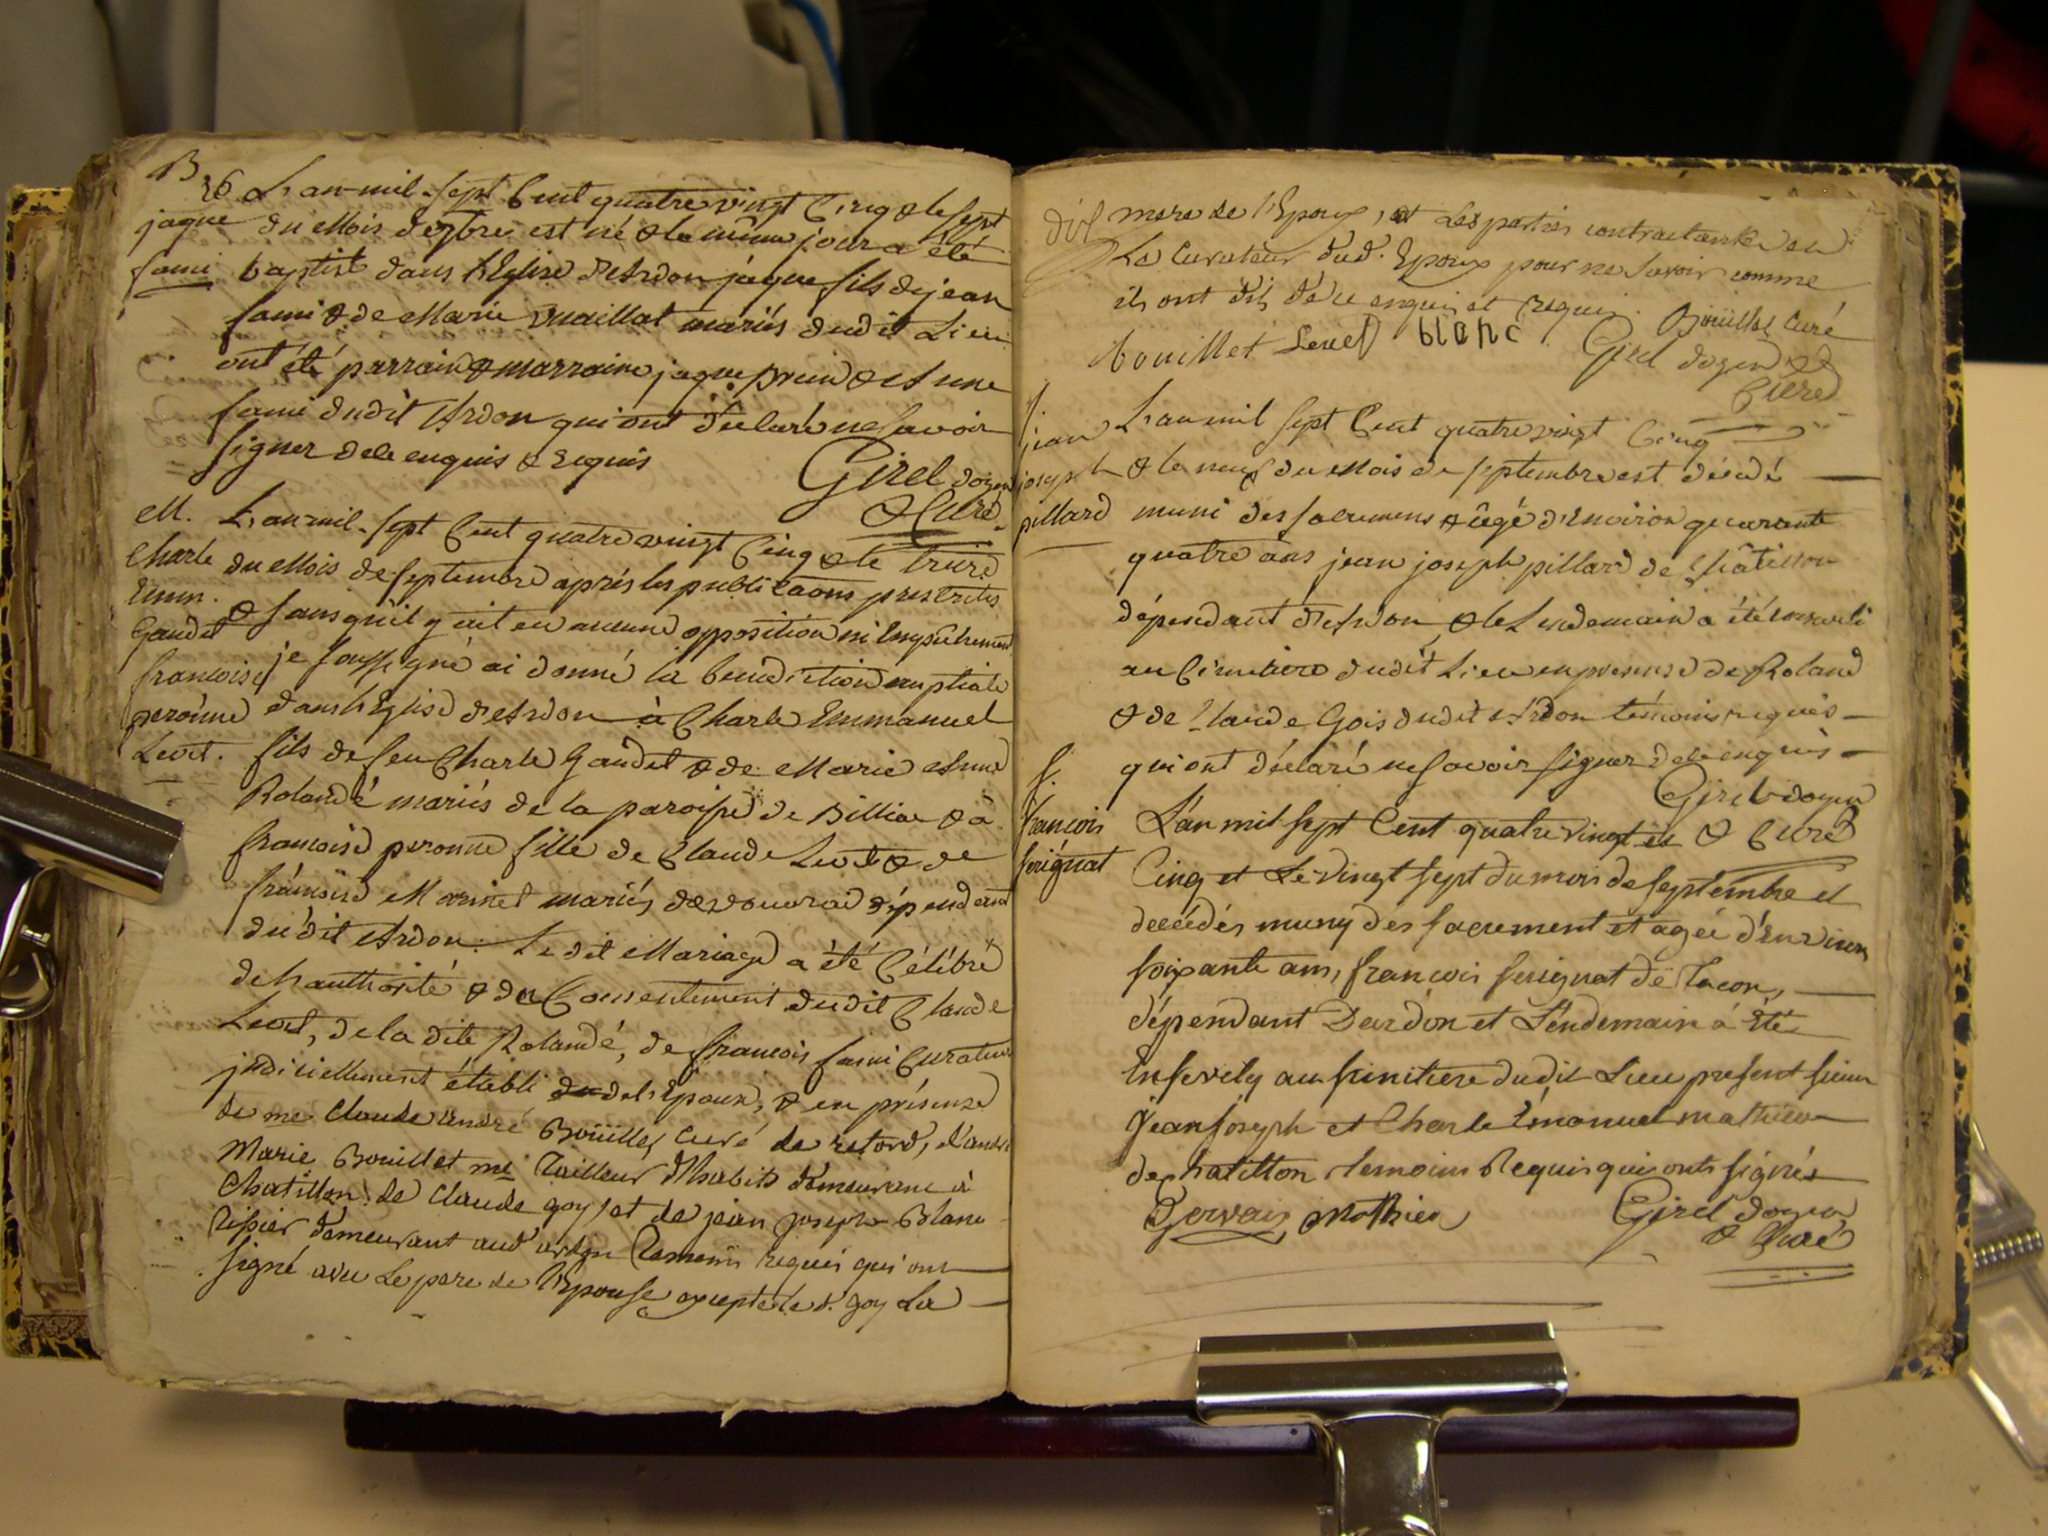 B
26 L'an mil-sept Cent quatre vingt Cinq & le sept
jaque du Mois de 7bre est né & le même jour a été
fami baptisé dans l'Eglise d'Ardon jaque fils de jean
fami & de Marie mariés dudit Lieu
ont été parrain & marraine jaque & Anne
fami dudit Ardon qui ont déclaré ne savoir
signer de ce enquis & requis
Girel doyen
& Curé
M. L'an mil-sept Cent quatre vingt Cinq & le treize
Charle du Mois de septembre après les publications prescrites
Emm. & sans qu'il y ait eu aucune opposition ni Empêchement
Gaudet
françoise je soussigné ai donné la bénédiction nuptiale
peronne dans l'Eglise d'Ardon à Charle Emmanuel
Levet. fils de feu Charle Gaudet & de Marie Anne
Rolandé mariés de la paroisse de Billiat & à
françoise peronne fille de Claude Levet & de
françoise Marinet mariés de vouvrai dépendant
dudit Ardon. Le dit Mariage a été Célébré
de l'authorité & du Consentement dudit Claude
Levet, de la dite Rolandé, de françois fami Curateur
judiciellement établi de l'Epoux, & en présence
de me Claude André Boüillet Curé de retord, d'andré
Marie Bouillet me Tailleur d'habits demeurant à
Chatillon de Claude goy et de jean joseph Blanc
Tissier demeurant aud ardon Temoins requis qui ont
signé avec Le pere de l'Epouse excepté le d. goy La
dix mere de l'Epoux, et Les parties contractantes et
Le Curateur dud. Epoux pour ne savoir comme
ils ont dit de ce enquis et requis. Boüillet Curé
bouillet Levet blanc Girel doyen &
Curé
f.
jean L'an mil sept Cent quatre vingt Cinq
joseph & le neuf du Mois de septembre est décédé
pillard muni des sacremens & âgé d'Environ quarante
quatre ans jean joseph pillard de Châtillon
dépendant d'Ardon, & le Lendemain a été enseveli
au Cimetiere dudit Lieu en presence de Roland
& de Claude Gois dudit Ardon témoins requis
qui ont déclaré ne savoir signer de ce enquis
Girel doyen
f.
françois L'an mil sept Cent quatre vingt et & Curé
serignat Cinq et Le vingt sept du mois de septembre et
decédés muny des sacrement et agée d'Environ
soixante ans, françois serignat de Tacon,
dépendant Dardon et L'endemain à été
Ensevely au simitiere dudit Lieu present sieur
jean joseph et Charle Emanuel mathieu
de chatillon temoins Requis qui onts signés
Gervais Mathieu Girel doyen
& Curé